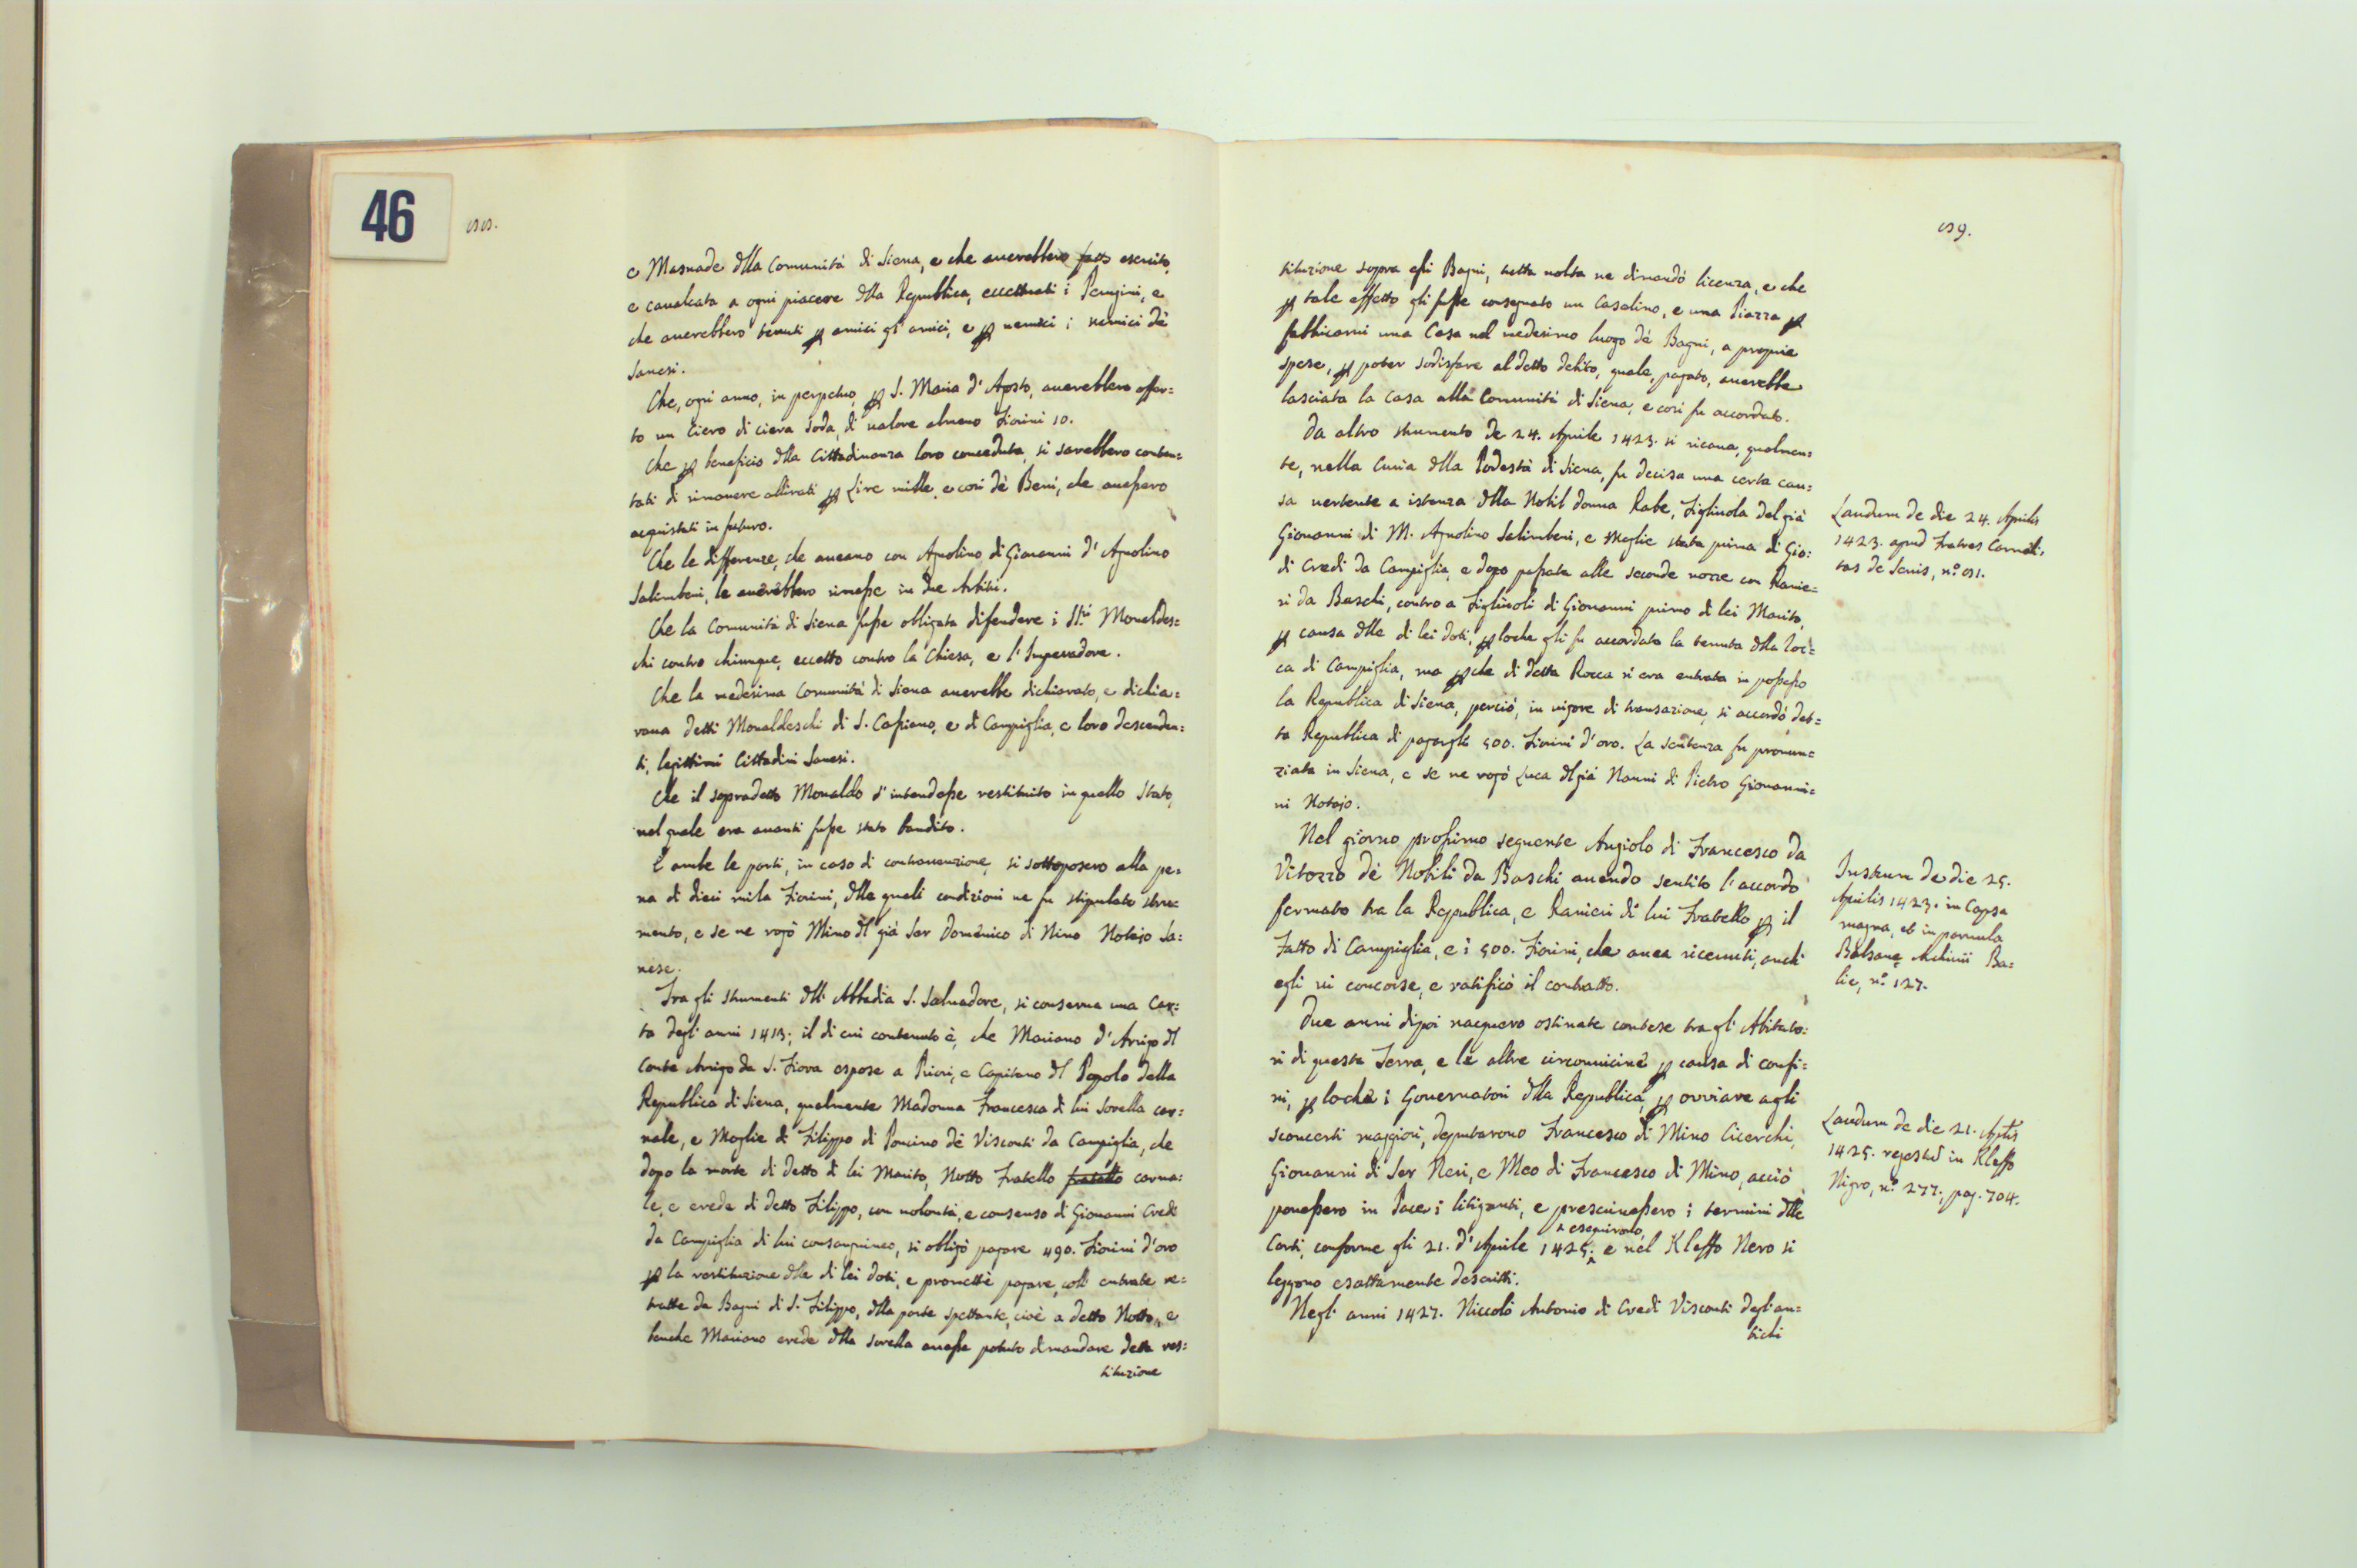 46
e Masnade dlla Comunità di Siena, e che averebbero fatto esercito,
e cavalcata a ogni piacere dlla Republica, eccettuati i Perugini, e
che averebbero tenuti p amici gl' amici, e p nemici i nemici dè
Sanesi.
Che, ogni anno, in perpetuo, p S. Maria d' Agosto, averebbero offer=
to un Ciero di ciera soda, di valore almeno Fiorini 10.
Che p beneficio dlla Cittadinanza loro conceduta, si sarebbero conten=
tati di rimanere allirati p Lire mille, e così dè Beni, che avessero
acquistati in futuro.
Che le differenze, che aveano con Agnolino di Giovanni d' Agnolino
Salimbeni, le averebbero rimesse in due Arbitri.
Che la Comunità di Siena fusse obligata difendere i Stti Monaldes=
chi contro chiunque, eccetto contro la Chiesa, e l' Imperadore.
Che la medesima Comunità di Siena averebbe dichiarato, e dichia=
rava detti Monaldeschi di S. Cassiano, e di Campiglia, e loro descenden=
ti, legittimi Cittadini Sanesi.
Che il sopradetto Monaldo s' intendesse restituito in quello stato,
nel quale era avanti fusse stato bandito.
E ambe le parti, in caso di contravenzione, si sottoposero alla pe=
na di dieci mila Fiorini, dlle quali condizioni ne fu stipulato stru=
mento, e se ne rogò Mino dl già Ser Domenico di Nino Notajo Sa=
nese.
Fra gli strumenti dll' Abbadia S. Salvadore, si conserva una Car=
ta degl' anni 1413; il di cui contenuto è, che Mariano d' Arrigo dl
Conte Arrigo da S. Fiora espose a Priori, e Capitano dl Popolo della
Republica di Siena, qualmente Madonna Francesca di lui sorella car=
nale, e Moglie di Filippo di Poncino dè Visconti da Campiglia, che
dopo la morte di detto di lei Marito, Notto Fratello fratello carna=
le, e erede di detto Filippo, con volontà, e consenso di Giovanni Credi
da Campiglia di lui consanguineo, si obligò pagare 490. Fiorini d' oro
p la restituzione dlle di lei doti, e promettè pagare, coll' entrate re=
tratte da Bagni di S. Filippo, dlla parte spettante, cioè a detto Notto, e
benche Mariano erede dlla sorella avesse potuto dimandare detta res=
tituzione
tituzione sopra essi Bagni, tutta volta ne dimandò licenza, e che
p tale effetto gli fusse consegnato un Casalino, e una Piazza p
fabbricarvi una Casa nel medesimo luogo dè Bagni, a proprie
spese, p poter sodisfare al detto debito, quale, pagato, averebbe
lasciata la casa alla Comunità di Siena, e così fu accordato.
Da altro strumento de 24. Aprile 1423. si ricava, qualmen=
te, nella Curia dlla Podestà di Siena, fu decisa una certa cau=
sa vertente a istanza dlla Nobil donna Rabe, Figliuola del già
Giovanni di M. Agnolino Salimbeni, e Moglie stata prima di Gio:
di Credi da Campiglia, e dopo passata alle seconde nozze con Ranie=
ri da Baschi, contro a Figliuoli di Giovanni primo di lei Marito,
p causa dlle di lei doti, p loche gli fu accordata la tenuta dlla Roc=
ca di Campiglia, ma pche di detta Rocca si era entrata in possesso
la Republica di Siena, perciò, in vigore di transazione, si accordò det=
ta Republica di pagargli 500. Fiorini d' oro. La sentenza fu pronun=
ziata in Siena, e se ne rogò Luca dl già Nanni di Pietro Giovanni=
ni Notajo.
Laudum de die 24. Aprilis
1423. apud Fratres Carmeli,
tas de Senis, n.º
Nel giorno prossimo seguente Angiolo di Francesco da
Vitozzo dè Nobili da Baschi avendo sentito l' accordo
fermato tra la Republica, e Ranieri di lui Fratello p il
Fatto di Campiglia, e i 500. Fiorini, che avea ricevuti, anch'
egli vi concorse, e ratificò il contratto.
Instrum de die 25.
Aprilis 1423. in Capsa
magna, et in parvula
Balzane Archivii Ba=
lie, n.º 127.
Due anni dipoi nacquero ostinate contese tra gl' Abitato:
ri di questa Terra, e le altre circonvicine p causa di confi=
ni, p loche i Governatori dlla Republica, p ovviare agli
sconcerti maggiori, deputarono Francesco di Mino Cicerchi,
Giovanni di Ser Neri, e Meo di Francesco di Mino, acciò
ponessero in Pace i litiganti, e prescrivessero i termini dlle
Corti, conforme gli 21. d' Aprile 1425. ^ eseguirono, e nel Kleffo Nero si
leggono esattamente descritti.
Laudum de die 21. Aplis
1425. regestũ in Kleffo
Nigro, n.º 277., pag. 704.
Negl' anni 1427. Niccolò Antonio di Credi Visconti degl' an=
tichi